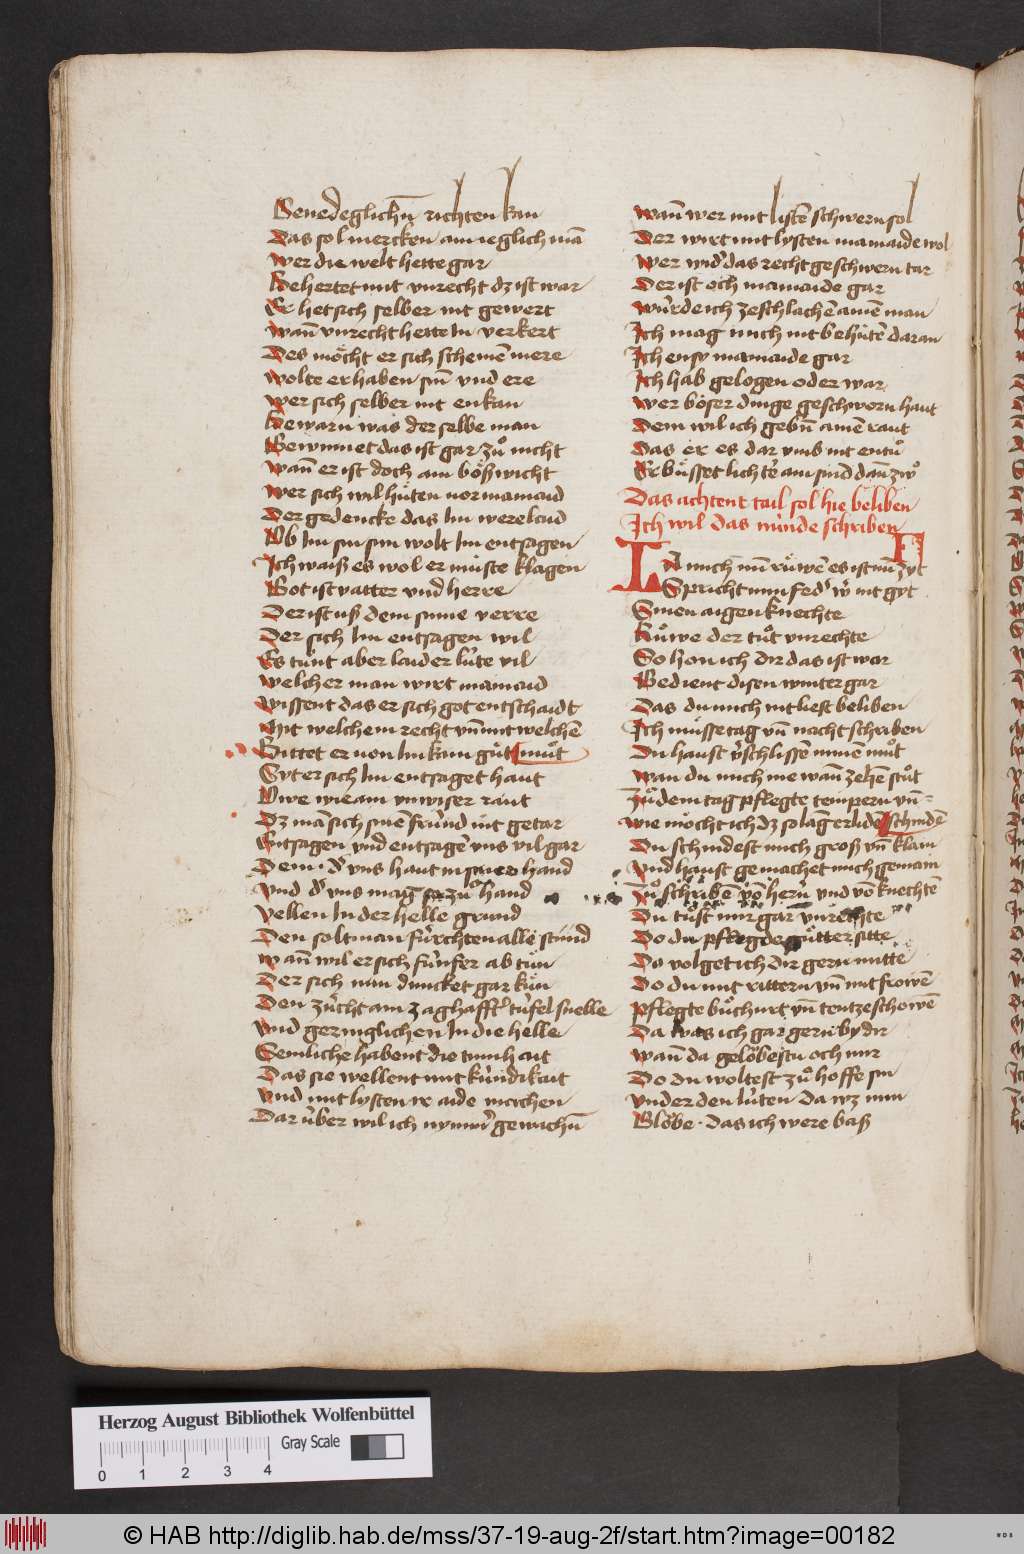 Genedeglichñ richten kan
Das sol mercken ain ieglich mā
Wer die welt hette gar
Behertet mit vnrecht dz ist war
Er het sich selber nit gewert
Wañ vnrecht hette In verkert
Des möcht er sich schemen mere
Wolte er haben sin̄ vnd ere
Wer sich selber nit enkan
Bewarn was der selbe man
Gewinnet das ist gar zuͦ nicht
Wañ er ist doch ain böß wicht
Wer sich wil hüten vor mainaid
Der gedencke das Im werelaid
Ob Im sin sun wolt Im entsagen
Ich waiß es wol er müste klagen
Got ist vatter vnd herre
Der ist uß dem sinne verre
Der sich Im entsagen wil
Es tünt aber laider lüte vil
Welcher man wirt mainaid
Wissent das er sich got entschaidt
Mit welchem recht vn̄ mit welchē
Bittet er von Im kain güt muͦt
Syt er sich Im entsaget haut
Owe wie ain vnwiser raut
Dz man sich sine fründ nit getar
Entsagen vnd entsagē vns vil gar
Dem d' vns haut in siner hand
Vnd d' vns mag zuͦ hand
Vellen In der helle grund
Den solt man fürchten alle stund
Wañ wil er sich fünfer ab tuͦn
Der sich nun duncket gar kün
Den zücht ain zaghafft tüfel snelle
Vnd geringlichen In die helle
Semliche habent die tumhait
Das sie wellent mit kündikait
Vnd mit lysten aide machen
Dar über wil ich nymer gewachñ
Wañ wer mit listē schwern sol
Der wirt mit lysten mainaide wol
Wer wid' das recht geschwern tar
Der ist och mainaide gar
Würde ich zeschlachē ainē man
Ich mag mich nit behütē daran
Ich ensy mainaide gar
Ich hab gelogen oder war
Wer böser dinge geschworn haut
Dem wil ich gebñ ainē raut
Das er es dar vmb nit entuͦ
Er büsset lichtē ain sünd dañ zwo
Das achtent tail sol hie beliben
Ich wil das nünde schriben
LA mich nun̄ ruͦwē es ist nun̄ zyt
Spricht min fed' w' nit gyt
Sinen aigen knechte
Ruͦwe der tuͦt vnrechte
So hon ich dir das ist war
Gedient disen winter gar
Das du mich nit liest beliben
Ich müsse tag vn̄ nacht schriben
Du haust v'schlissen minen muͦt
Wan du mich me wañ zehē stuͦt
Zuͦ dem tag pflegte tempern vn̄
Wie möcht ich dz so lāg erlidē schindē
Du schindest mich groß vn̄ klain
Vnd haust gemachet mich gemain
Zuͦ schribē vō hern vnd vō knechtē
Du tuͦst mir gar vnrechte
Do du pflegde guͦtter sitte
Do volget ich dir gern mitte
Do du mit rittern vn̄ mit frowē
Pflegte buͦhurt vn̄ tentze schowē
Da was ich gar gern by dir
Wañ da gelöbestu och mir
Do du woltest zuͦ hoffe sin
Vnder den lüten da wz min
Glöbe · das ich were baß
Herzog August Bibliothek Wolfenbüttel
Gray Scale
0 1 2 3 4
© HAB http://diglib.hab.de/mss/37-19-aug-2f/start.htm?image=00182